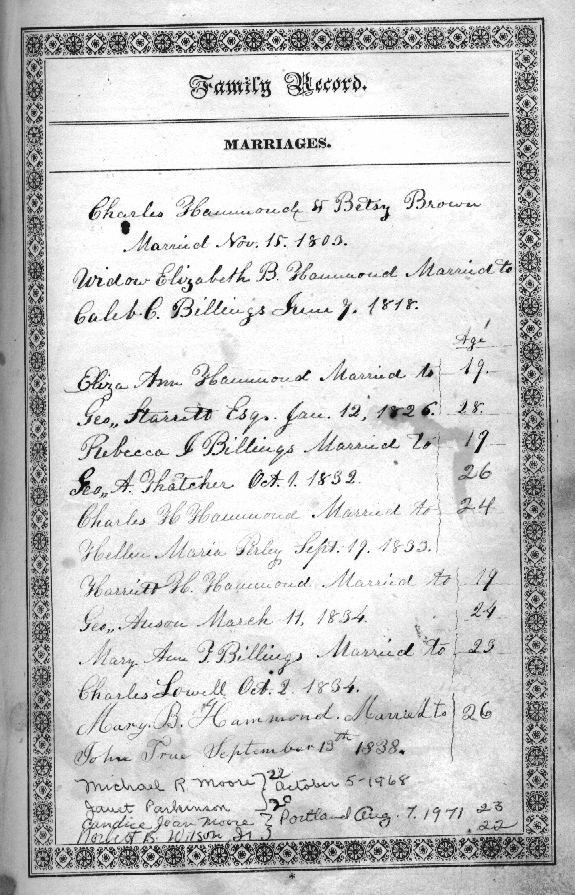 Family Record.
MARRIAGES.
Charles Hammond & Betsy Brown
Married Nov. 15. 1803.
Widow Elizabeth B. Hammond Married to
Caleb C. Billings June 7. 1818.
Age
Eliza Ann Hammond Married to 19.
Geo,, Starrett Esq. Jan. 12, 1826. 28.
Rebecca J Billings Married to 19
Geo,, A. Thatcher Oct. 1. 1832. 26
Charles H Hammond Married to 24
Hellen Maria Perley Sept. 19. 1833.
Harriett H. Hammond Married to 19
Geo,, Anson March 11, 1834. 24
Mary Ann F. Billings Married to 23
Charles Lowell Oct. 2. 1834.
Mary. B. Hammond. Married to 26
John True September 13th 1838.
Michael R Moore 22 October 5-1968
Janet Parkinson 20
Candice Joan Moore Portland Aug. 7. 1971 23
B. Wilson Jr. 22